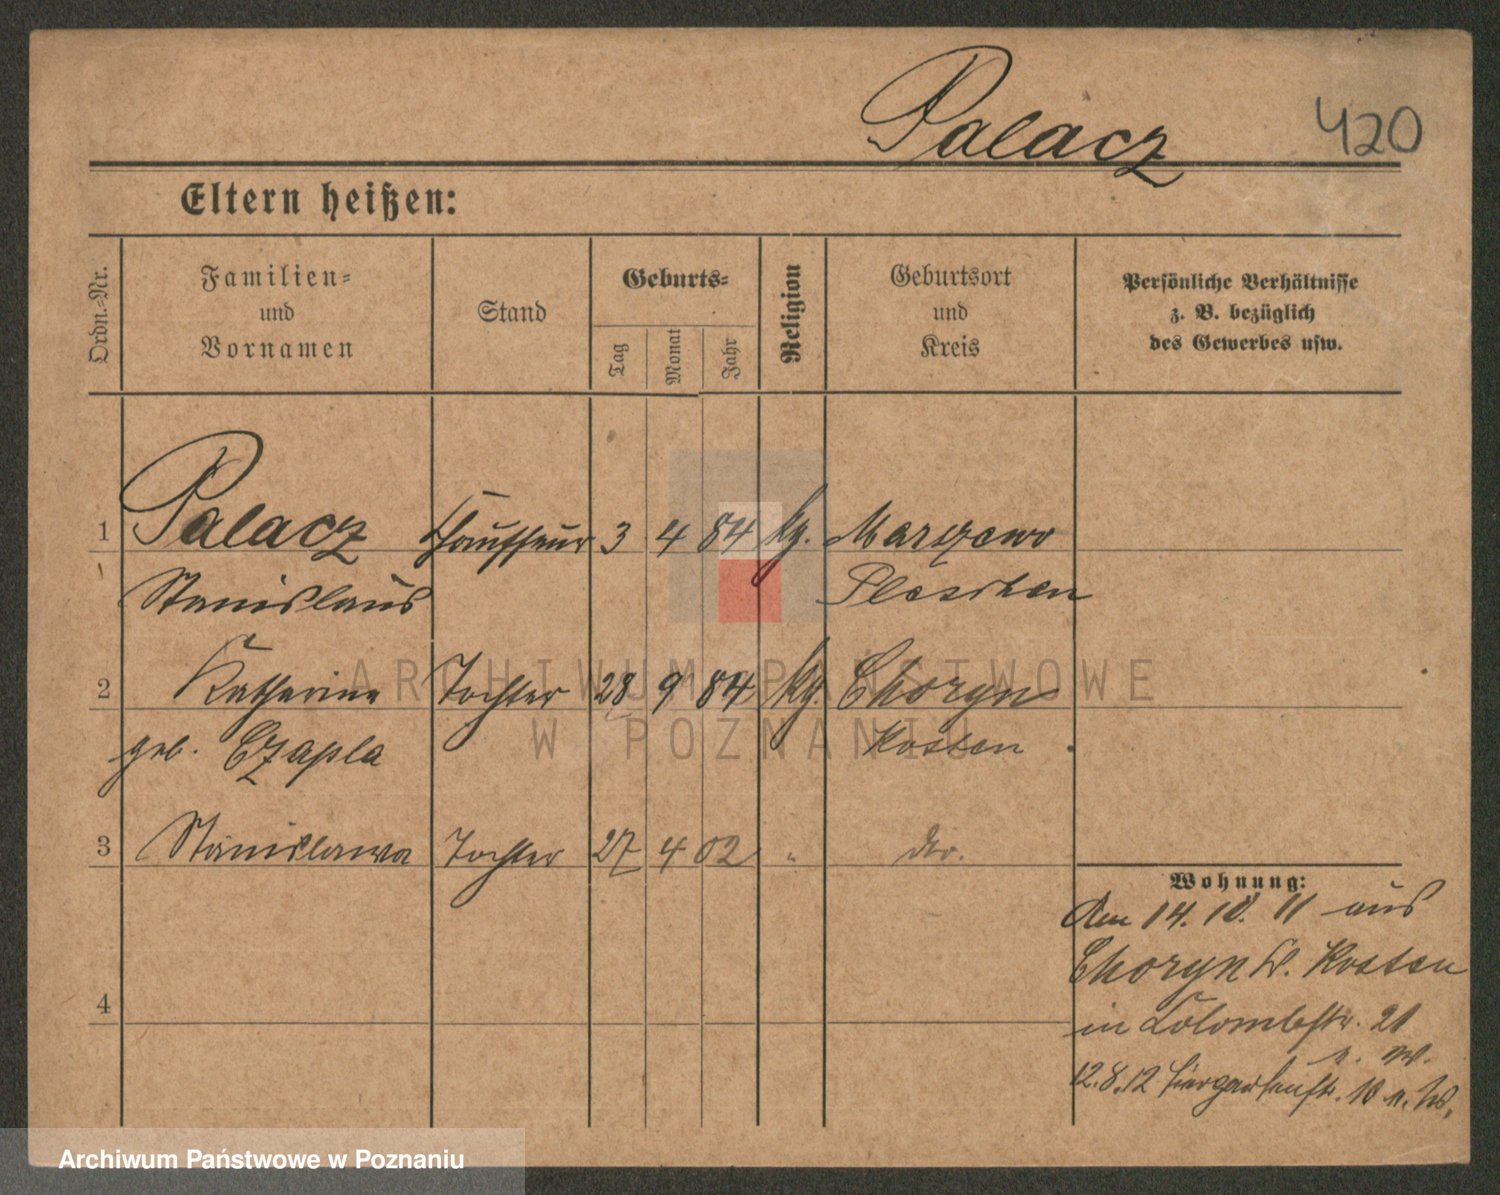 Palacz 420
Eltern heißen:
Ordn.-Nr.
Familien-
und
Vornamen
Stand
Geburts-
Tag
Monat
Jahr
Religion
Geburtsort
und
Kreis
Persönliche Verhältnisse
z. B. bezüglich
des Gewerbes usw.
1 Palacz Chauffeur 3 4 84 kg. Marszewo
Stanislaus Pleschen
2 Katharina Tochter 28 9 84 kg. Choryn
geb. Czapla Kosten
3 Stanislawa Tochter 27 4 02 " do.
Wohnung:
Am 14. 10. 11 aus
Choryn Kr. Kosten
4
in Colombstr. 21
12.8.12 Tiergartenstr. 10
ARCHIWUM PAŃSTWOWE
W POZNANIU
Archiwum Państwowe w Poznaniu